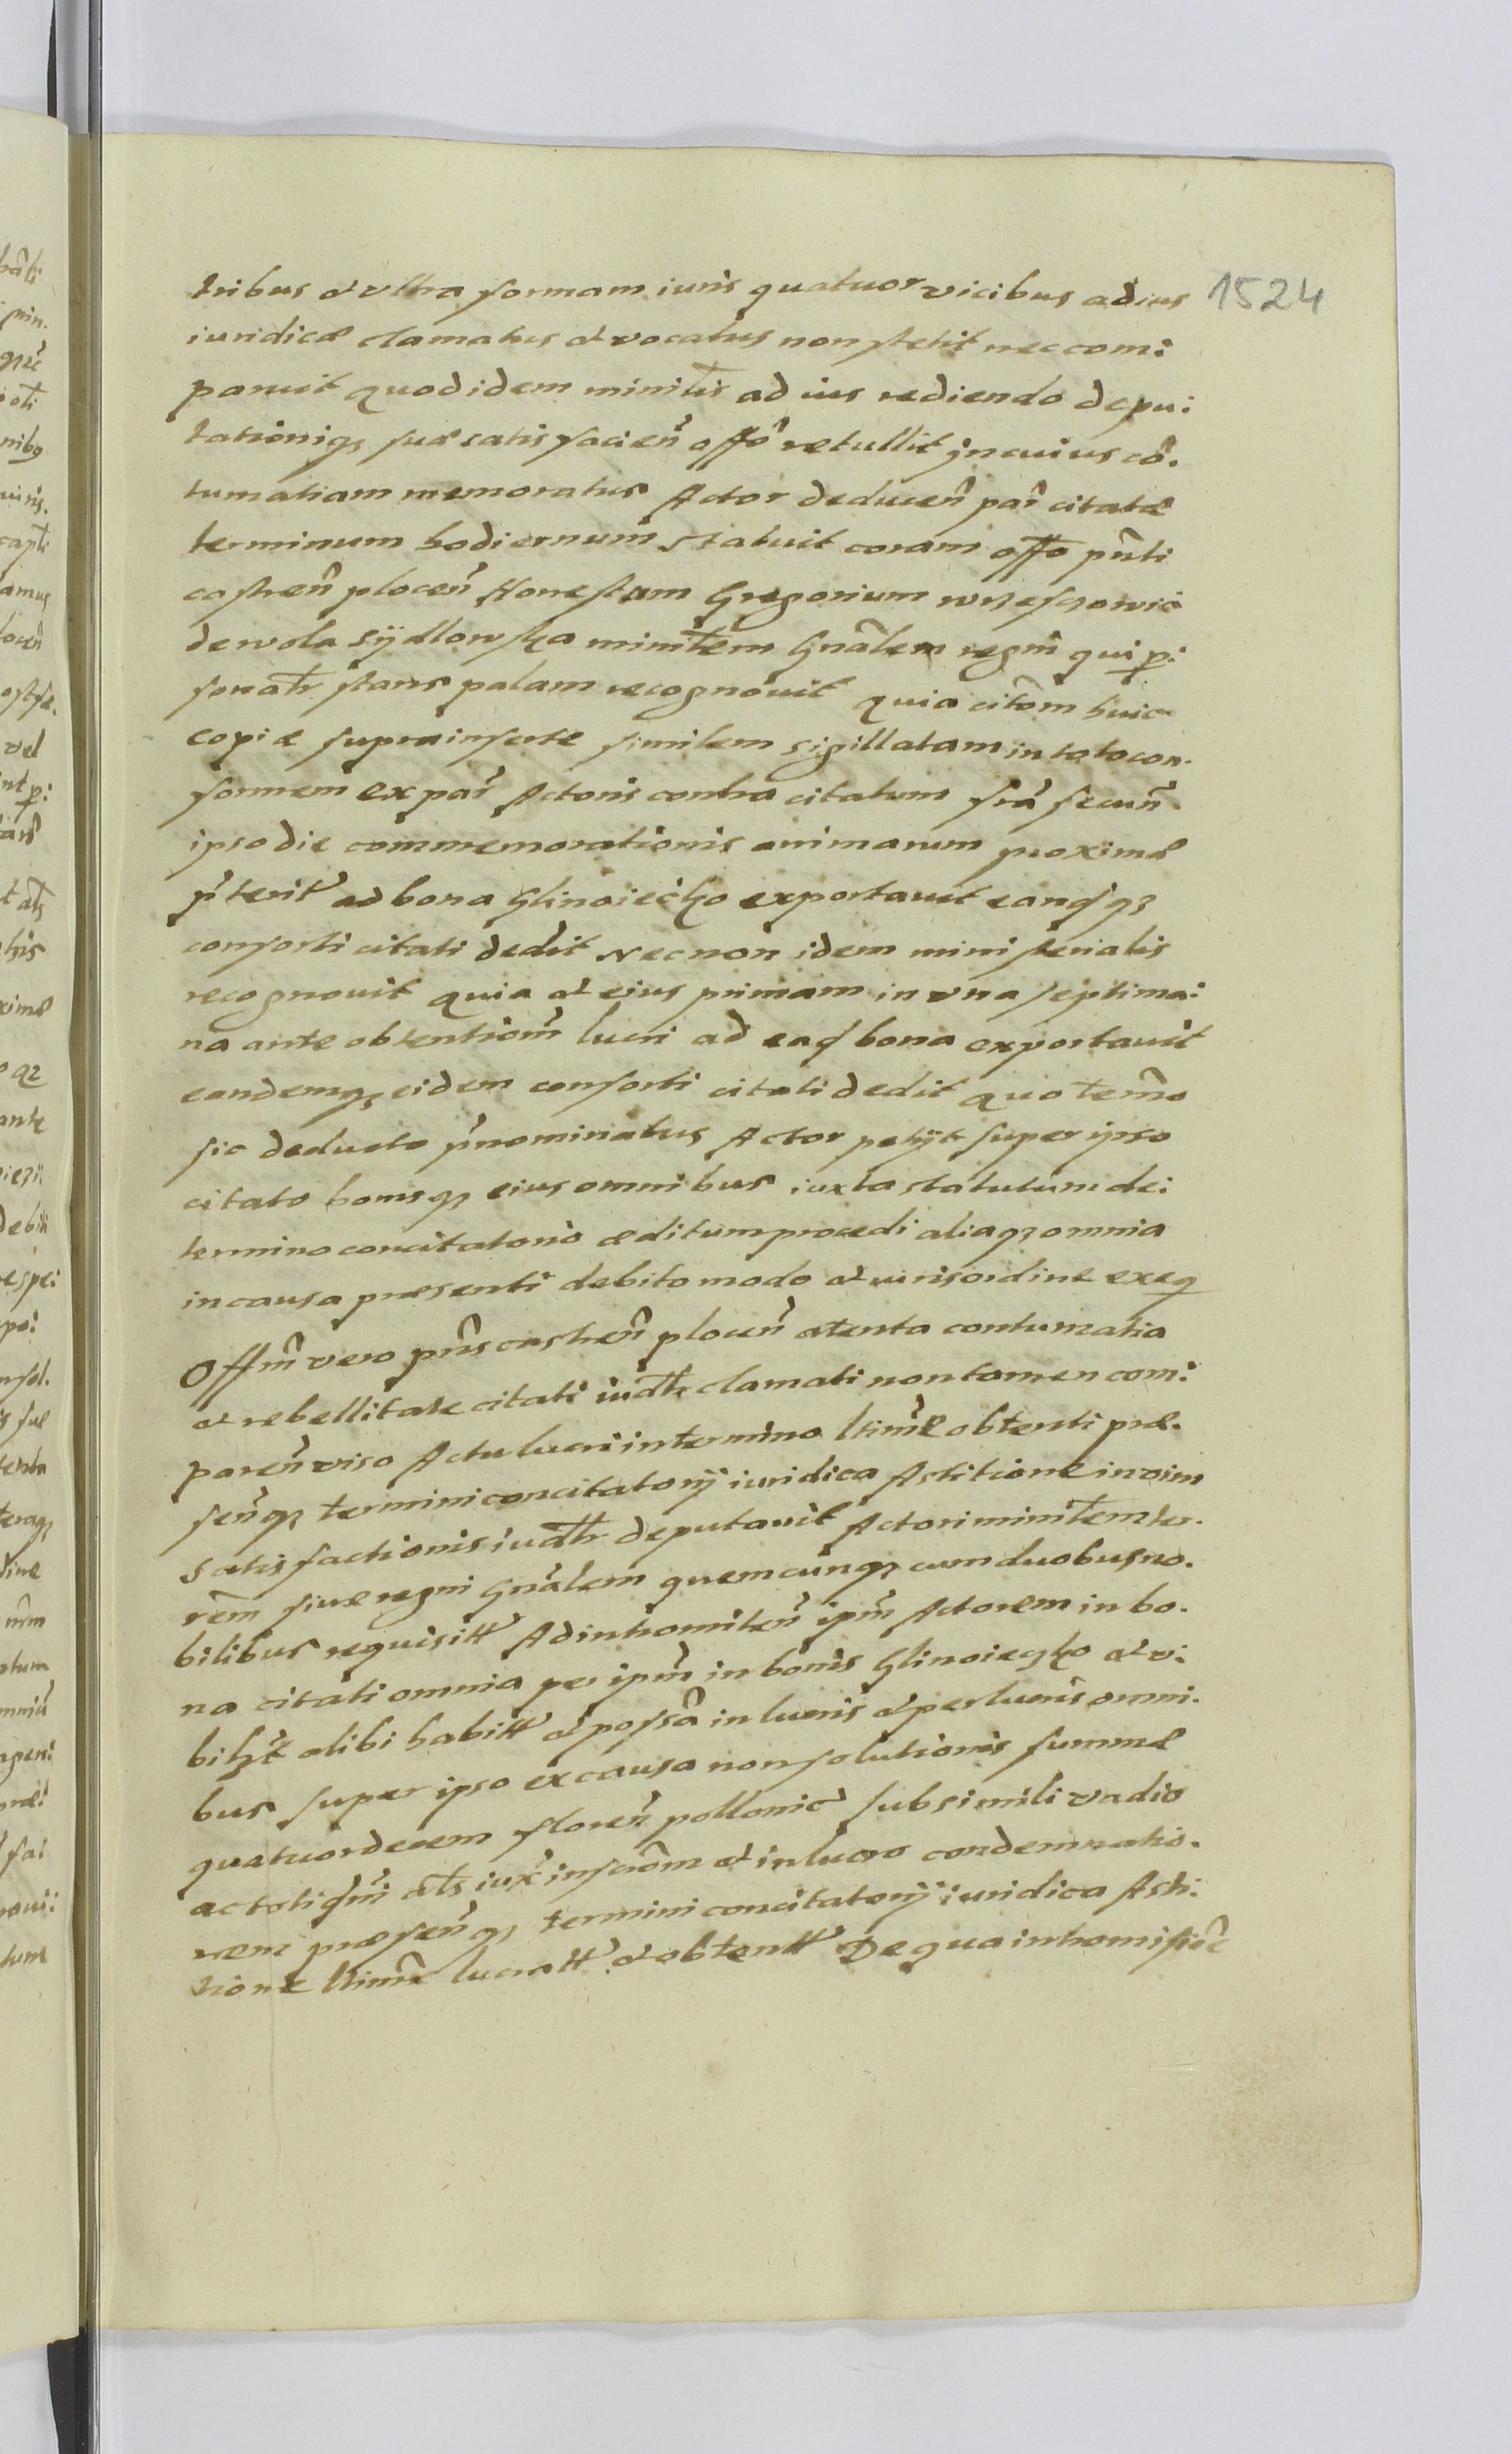 tribus et vltra formam iuris quatuor vicibus ad ius 1524
iuridicæ clamatus et vocatus non stetit nec com:
paruit Quod idem minitlis ad ius rediendo depu:
tationiq3 suæ satisfacien offo retullit Jn cuius co.
tumatiam memoratus Actor deducen par citatæ
terminum hodiernum statuit coram offo pnti
castren plocen Honestum Gregorium
de wola Sÿdlowska minitlem Gnalem regni qui p:
sonatr stans palam recognovit Quia citom huic
copiæ suprainserte similem sigillatam in toto con.
formem ex par Actoris contra citatum fra secun.
ipso die commemorationis animarum proximæ
pterit ad bona Glinoieczko exportavit eandq3
consorti citati dedit Necnon idem ministerialis
recognovit Quia et eius primam in vna septima:
na ante obtentiom lucri ad ead bona exportavit
eandemq3 eidem consorti citati dedit Quo temno
sic deducto pnominatus Actor petijt super ipso
citato bonisq3 eius omnibus iuxta statutum de:
termino concitatorio æditum procedi aliaq3 omnia
in causa præsenti debito modo et iuris ordine exeq
Offm vero pns castren plocen atenta contumatia
et rebellitate citati iudlr clamati non tamen com:
paren viso Actu lucri in termino ltime obtenti præ.
senq3 termini concitatorij iuridica Astitione in vim
satisfactionis iudlr deputavit Actori minitlem ter.
rem siue regni Gnalem quemcunq3 cum duobus no.
bilibus requisitt Ad intromitten ipm Actorem in bo.
na citati omnia per ipm in bonis Glinoieczko et v:
bilzt alibi habitt et possa in lucris et per lucris omni.
bus super ipso ex causa non solutionis summæ
quatuordecem floren pollonic sub simili vadio
iux inscriom et in lucro condemnatio.
nem præsenq3 termini concitatorij iuridica Asti:
tione ltime lucratt et obtentt De qua intromissioe